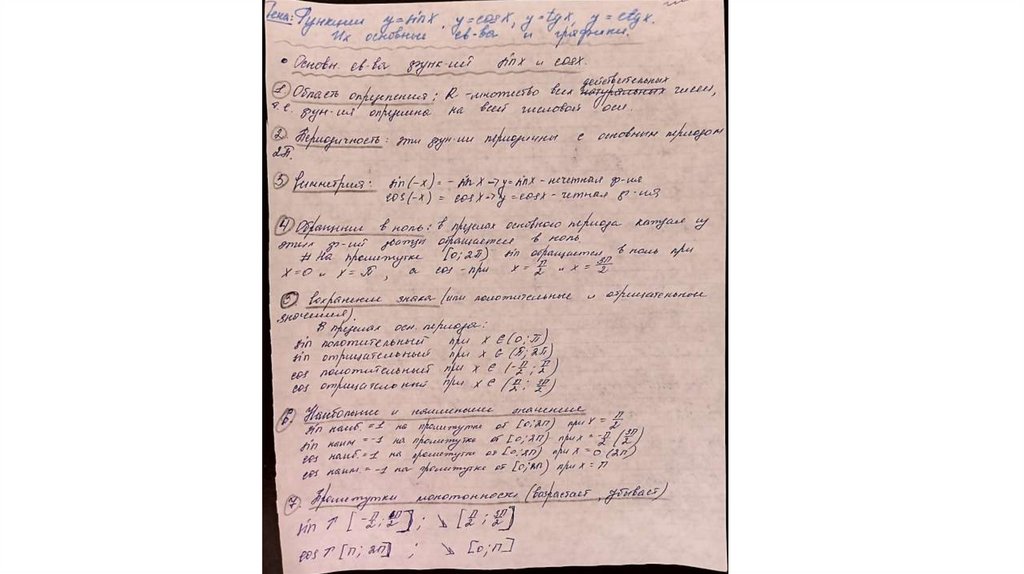 Тема: Функции y=sinx, y=cosx, y=tgx, y=ctgx.
Их основные св-ва и графики.
• Основн. св-ва функ-ий sinx и cosx.
① Область определения: R - множество всех натуральных действительных чисел,
т.е. фун-ия определена на всей числовой оси.
② Периодичность: эти фун-ии периодичны с основным периодом
2π.
③ Симметрия: sin(-x) = - sinx → y=sinx - нечетная ф-ия
cos(-x) = cosx → y=cosx - четная ф-ия
④ Обращение в ноль: в пределах основного периода каждая из
этих ф-ий дважды обращается в ноль.
# На промежутке [0; 2π) sin обращается в ноль при
x=0 и x=π, а cos - при x=π/2 и x=3π/2
⑤ Сохранение знака (или положительные и отрицательные
значения).
В пределах осн. периода:
sin положительный при x ∈ (0; π)
sin отрицательный при x ∈ (π; 2π)
cos положительный при x ∈ (-π/2; π/2)
cos отрицательный при x ∈ (π/2; 3π/2)
⑥ Наибольшие и наименьшие значение
sin наиб.=1 на промежутке от [0; 2π) при x=π/2
sin наим=-1 на промежутке от [0; 2π) при x=-π/2 (3π/2)
cos наиб.=1 на промежутке от [0; 2π) при x=0 (2π)
cos наим.=-1 на промежутке от [0; 2π) при x=π
⑦ Промежутки монотонности (возрастает, убывает)
sin ↑ [-π/2; π/2]; ↘ [π/2; 3π/2]
cos ↑ [π; 2π]; ↘ [0; π]